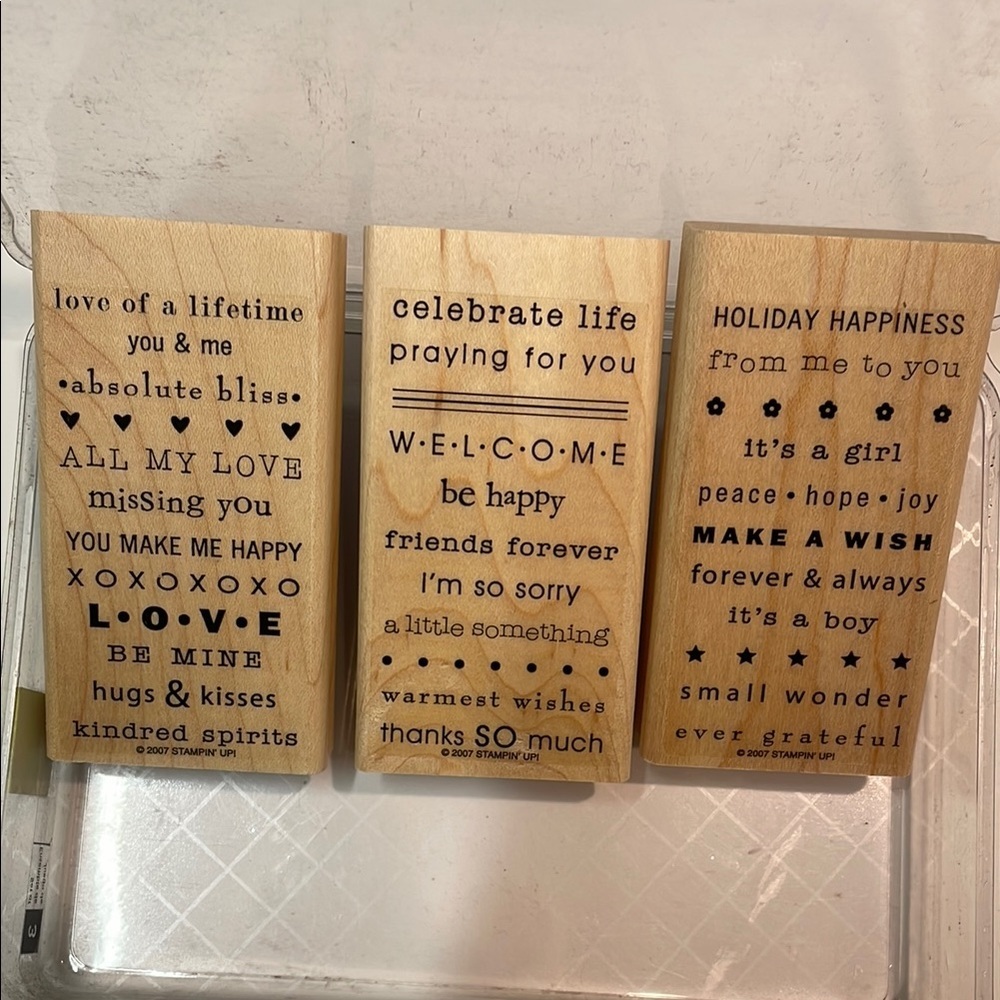 love of a lifetime
you & me
•absolute bliss•
ALL MY LOVE
missing you
YOU MAKE ME HAPPY
XOXOXOXO
L•O•V•E
BE MINE
hugs & kisses
kindred spirits
© 2007 STAMPIN' UP!
celebrate life
praying for you
W•E•L•C•O•M•E
be happy
friends forever
I'm so sorry
a little something
warmest wishes
thanks SO much
© 2007 STAMPIN' UP!
HOLIDAY HAPPINESS
from me to you
it's a girl
peace • hope • joy
MAKE A WISH
forever & always
it's a boy
small wonder
ever grateful
© 2007 STAMPIN' UP!
3